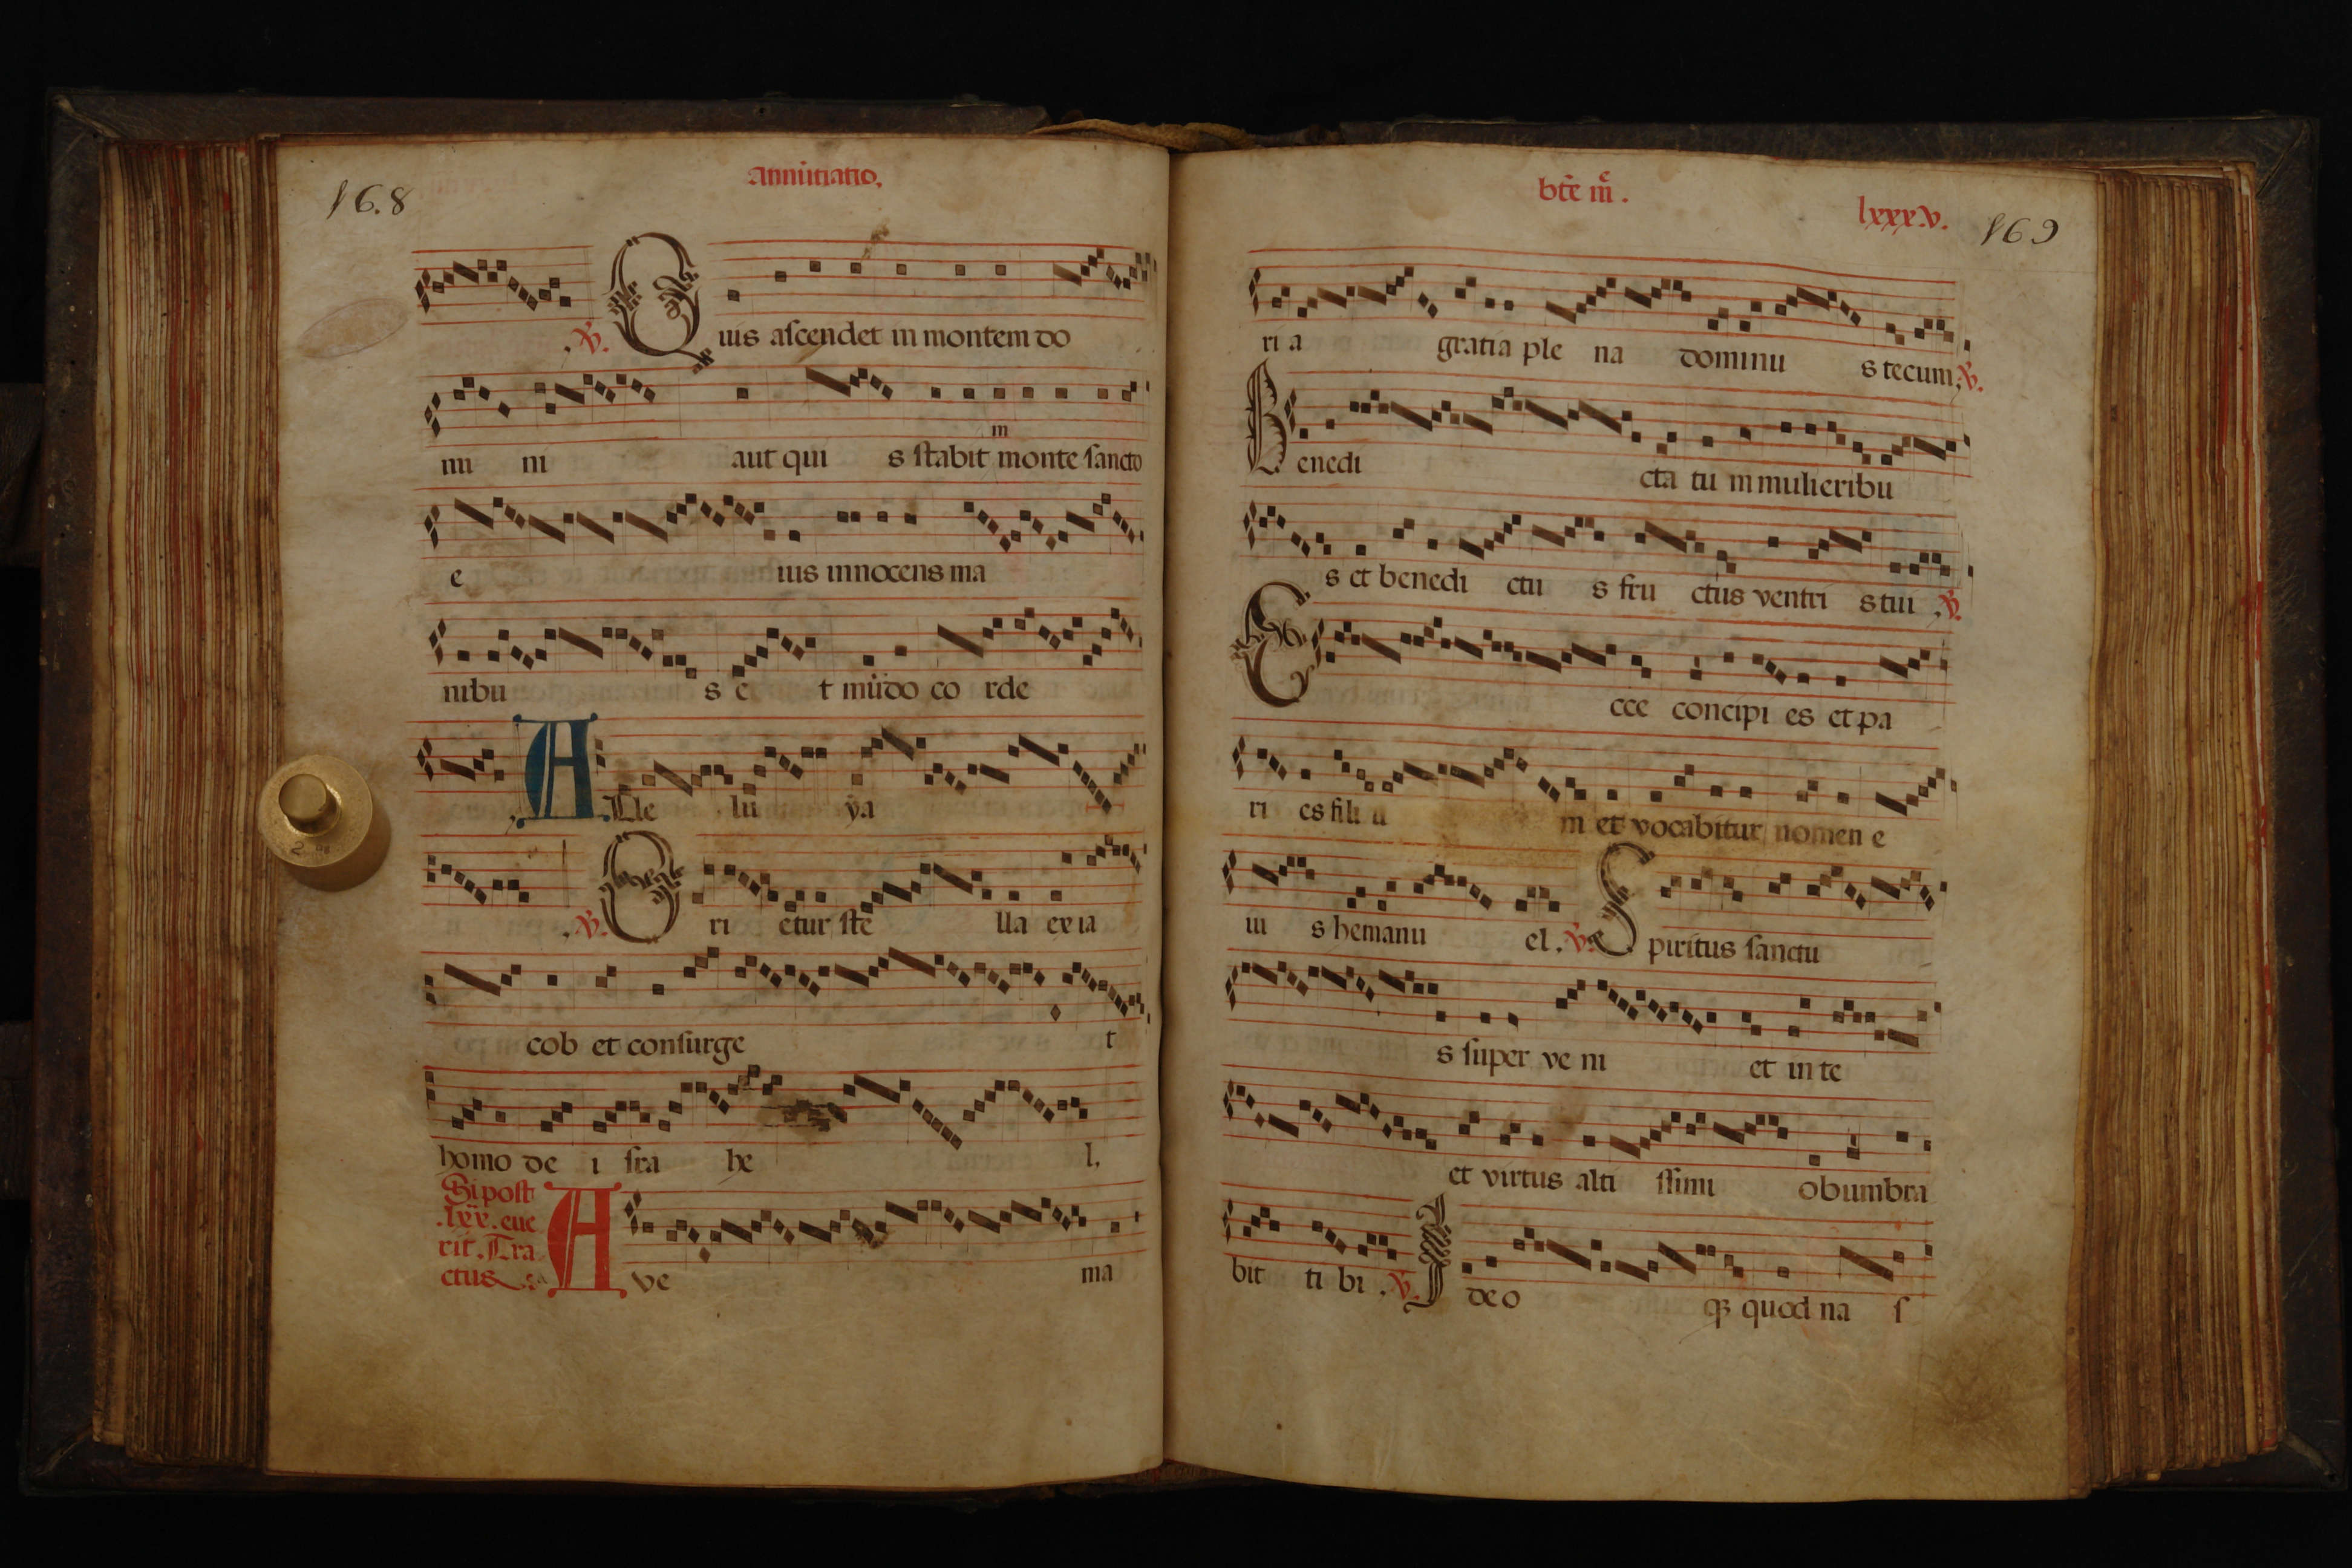 Annũtiatio.
16.8
.℣. Quis aſcendet in montem do
mi ni aut qui s ſtabit monte ſancto
in
e ius innocens ma
nibu s e t mũdo co rde
. Alle lu ẏa
.℣. Ori etur ſte lla ex ia
cob et conſurge t
homo de i ſra he l.
Si poſt
.lxx. eue
rit. Tra
ctus
Ave ma
bt̃e m̃.
lxxxv. 169
ri a gratia ple na dominu s tecum .℣.
Benedi cta tu in mulieribu
s et benedi ctu s fru ctus ventri s tui .℣.
Ecce concipi es et pa
ri es fili u m et vocabitur nomen e
iu s hemanu el .℣. Spiritus ſanctu
s ſuper ve ni et in te
et virtus alti ſſimi obumbra
bit ti bi .℣. Ideo qꝫ quod na ſ